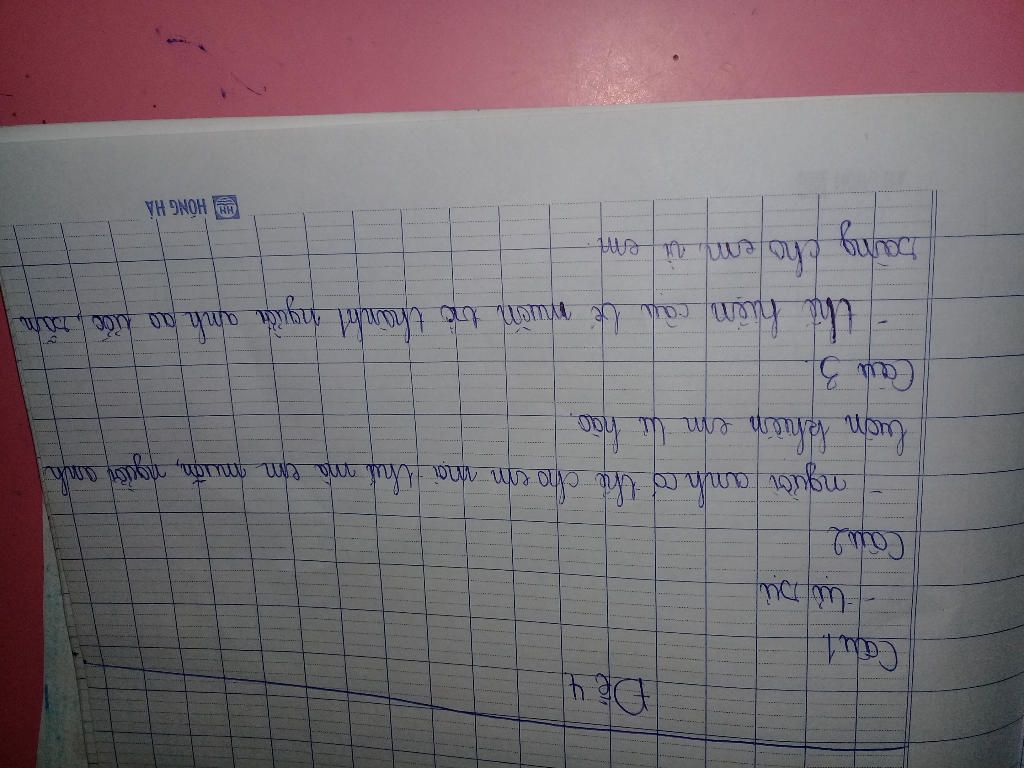 Đề 4
Câu 1
- tự sự
Câu 2
- người anh có thể cho em mọi thứ mà em muốn, người anh
luôn khiến em tự hào.
Câu 3.
- thể hiện cậu bé muốn trở thành 1 người anh ao ước, sẵn
sàng cho em, vì em.
HH HỒNG HÀ